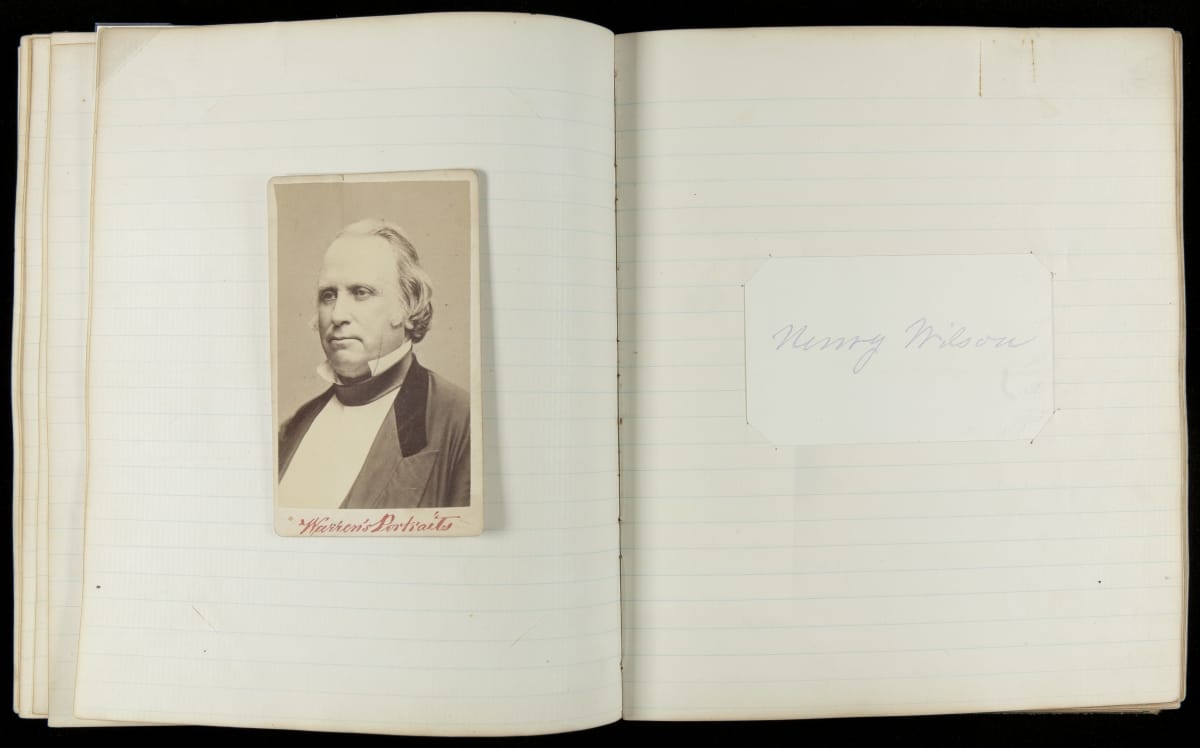 Warren's Portraits
Henry Wilson